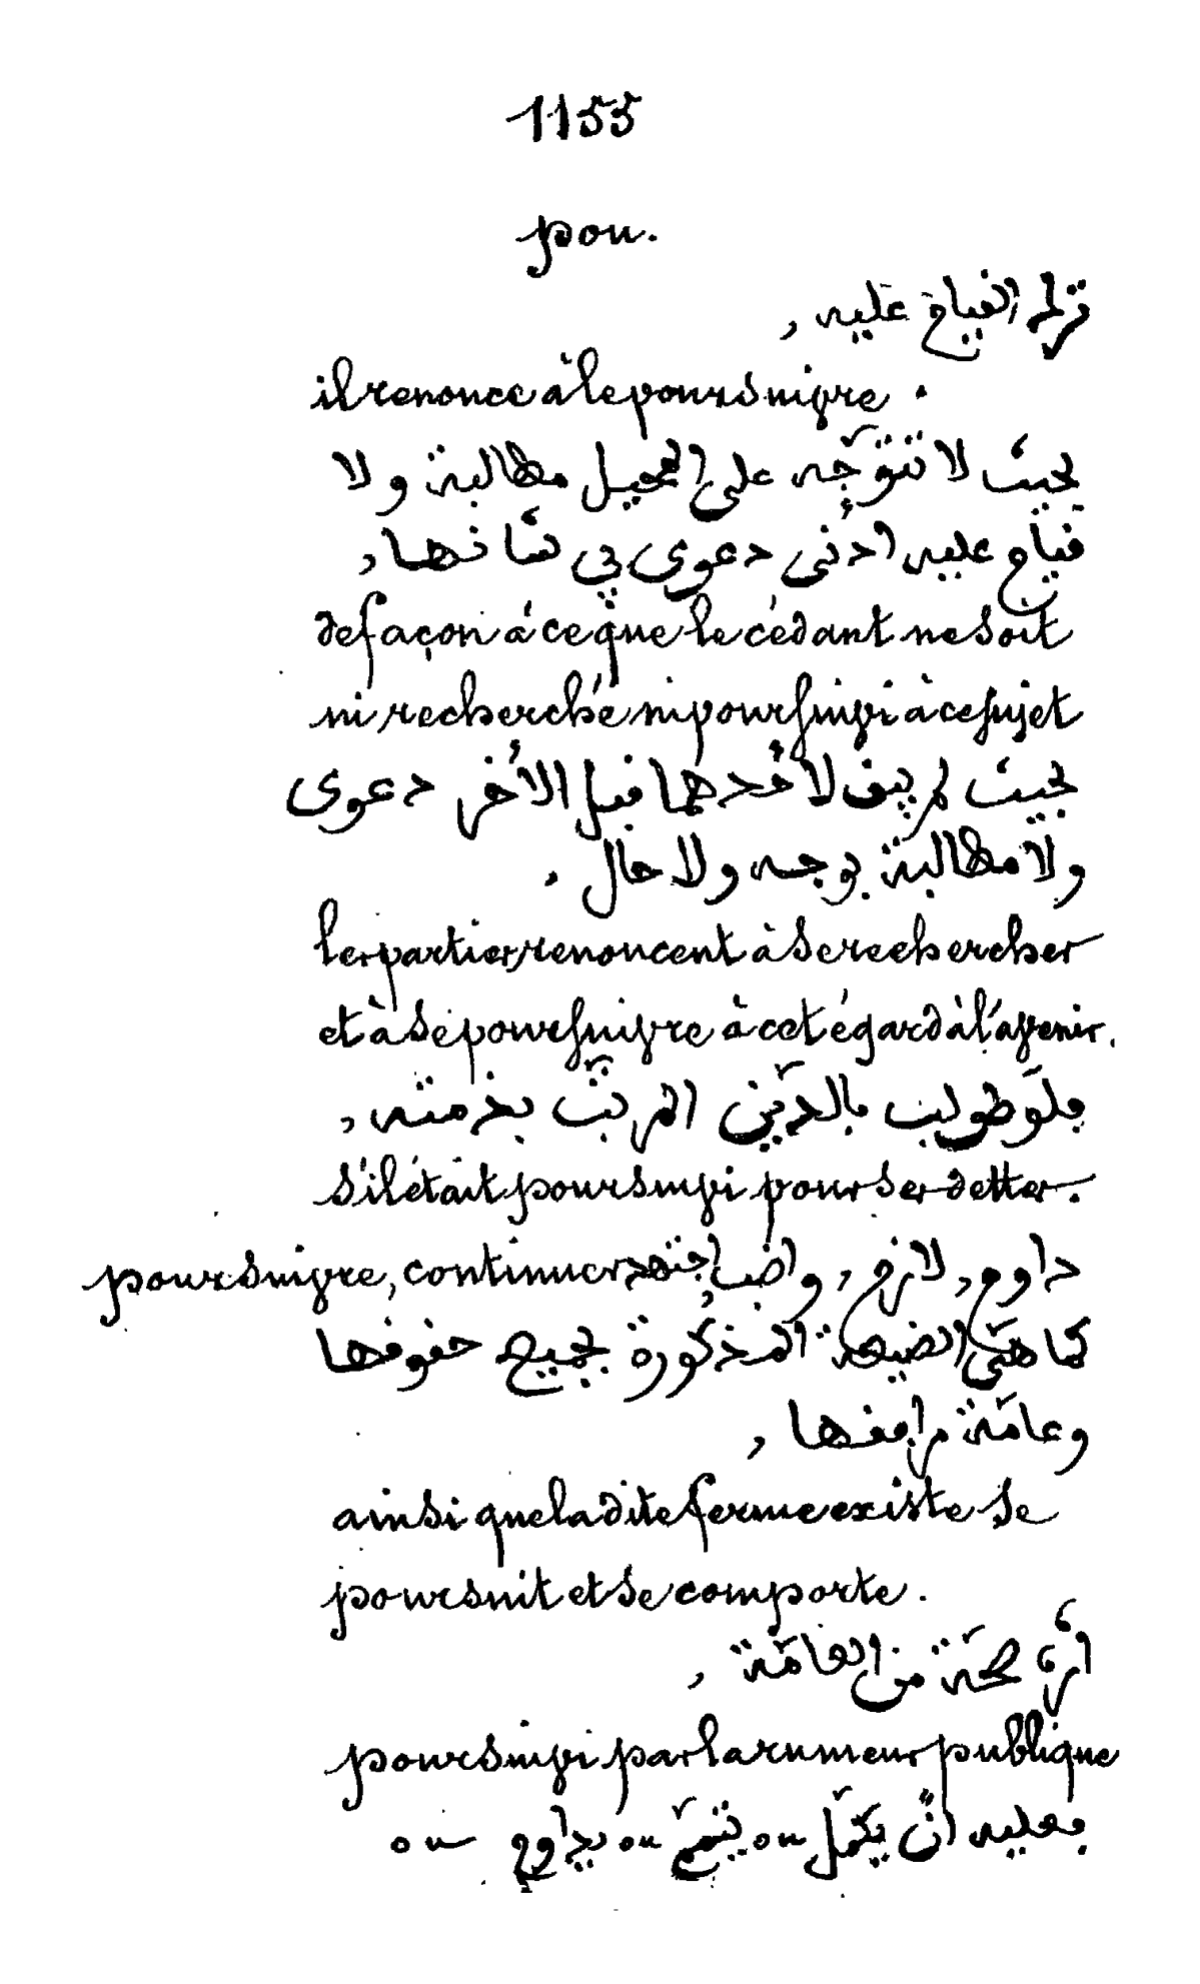 1155
pou.
ترك القيام عليه,
il renonce à le poursuivre.
بحيث لا تتوجّه على المحيل مطالبة ولا
قيام عليه أدنى دعوى في شأنها,
de façon à ce que le cédant ne soit
ni recherché ni poursuivi à ce sujet
بحيث لم يبق لأحدهما قبل الأخر دعوى
ولا مطالبة بوجه ولا حال.
les parties renoncent à se rechercher
et à se poursuivre à cet égard à l'avenir.
فلو طولب بالدين المرتّب بذمته,
s'il était poursuivi pour ses dettes.
poursuivre, continuer داوم, لازم, واضب, اجتهد
كما هى الضيعة المذكورة بجميع حقوقها
وعامّة مرافقها,
ainsi que la dite ferme existe se
poursuit et se comporte.
من العامّة,
poursuivi par la rumeur publique
فعليه أنّ يكمّل ou يتمّم ou يداوم ou